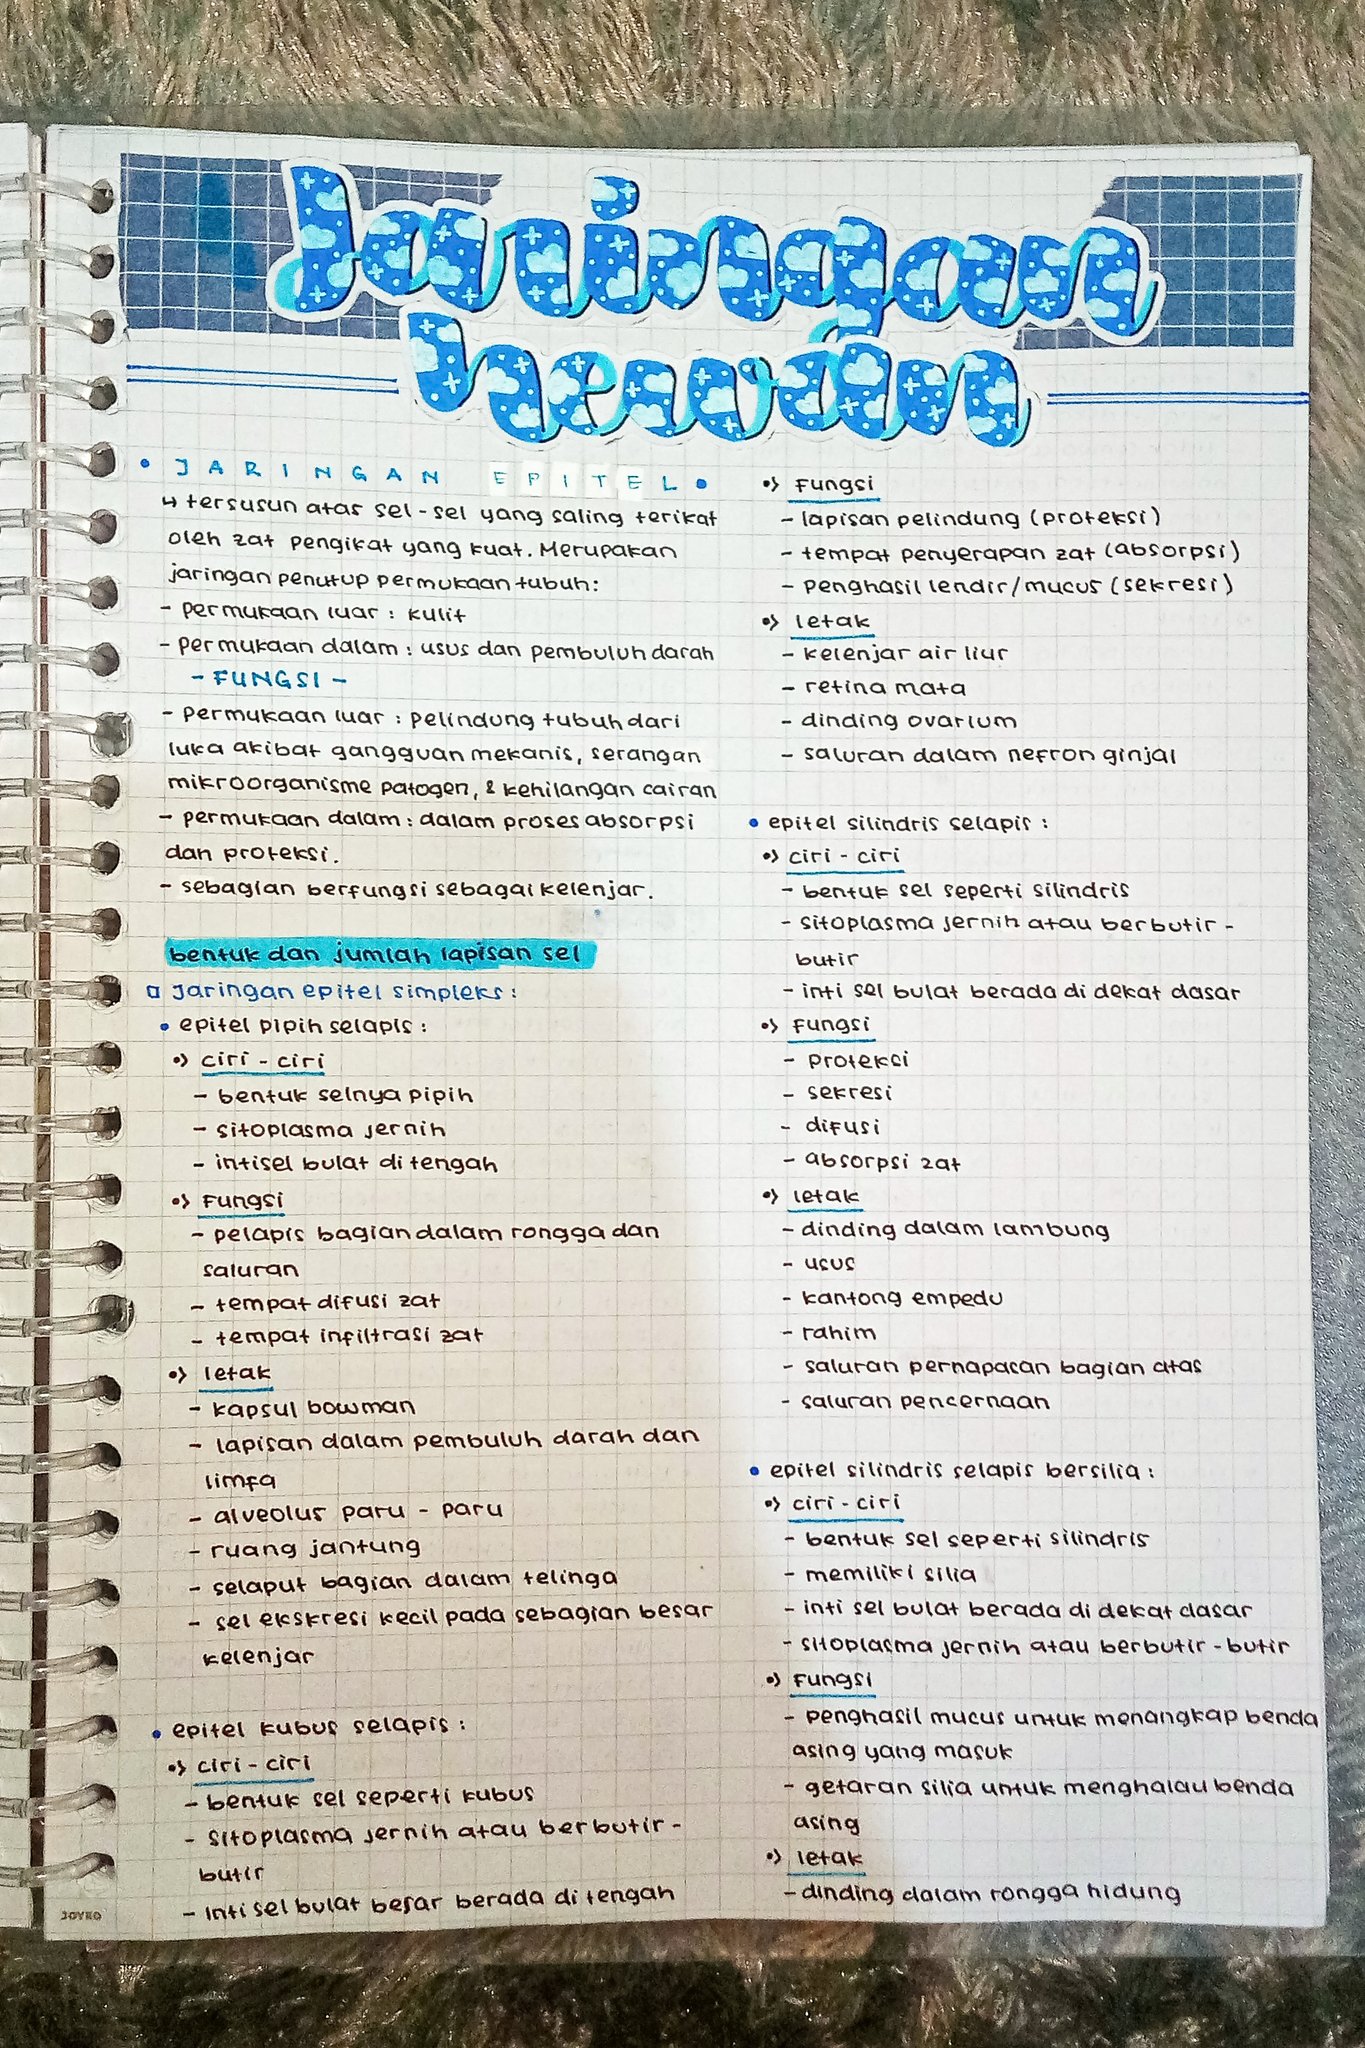 Jaringan
hewan
• JARINGAN EPITEL •
↳ tersusun atas sel-sel yang saling terikat
oleh zat pengikat yang kuat. Merupakan
jaringan penutup permukaan tubuh:
- permukaan luar : kulit
- permukaan dalam : usus dan pembuluh darah
- FUNGSI -
- permukaan luar : pelindung tubuh dari
luka akibat gangguan mekanis, serangan
mikroorganisme patogen, & kehilangan cairan
- permukaan dalam : dalam proses absorpsi
dan proteksi.
- sebagian berfungsi sebagai kelenjar.
bentuk dan jumlah lapisan sel
□ Jaringan epitel simpleks :
• epitel pipih selapis :
•> ciri - ciri
- bentuk selnya pipih
- sitoplasma jernih
- inti sel bulat di tengah
•> Fungsi
- pelapis bagian dalam rongga dan
saluran
- tempat difusi zat
- tempat infiltrasi zat
•> letak
- kapsul bowman
- lapisan dalam pembuluh darah dan
limfa
- alveolus paru - paru
- ruang jantung
- selaput bagian dalam telinga
- sel ekskresi kecil pada sebagian besar
kelenjar
• epitel kubus selapis :
•> ciri - ciri
- bentuk sel seperti kubus
- sitoplasma jernih atau berbutir -
butir
- inti sel bulat besar berada di tengah
•> Fungsi
- lapisan pelindung (proteksi)
- tempat penyerapan zat (absorpsi)
- penghasil lendir/mucus (sekresi)
•> letak
- kelenjar air liur
- retina mata
- dinding ovarium
- saluran dalam nefron ginjal
• epitel silindris selapis :
•> ciri - ciri
- bentuk sel seperti silindris
- sitoplasma jernih atau berbutir -
butir
- inti sel bulat berada di dekat dasar
•> Fungsi
- proteksi
- sekresi
- difusi
- absorpsi zat
•> letak
- dinding dalam lambung
- usus
- kantong empedu
- rahim
- saluran pernapasan bagian atas
- saluran pencernaan
• epitel silindris selapis bersilia :
•> ciri - ciri
- bentuk sel seperti silindris
- memiliki silia
- inti sel bulat berada di dekat dasar
- sitoplasma jernih atau berbutir - butir
•> Fungsi
- penghasil mucus untuk menangkap benda
asing yang masuk
- getaran silia untuk menghalau benda
asing
•> letak
- dinding dalam rongga hidung
JOYKO